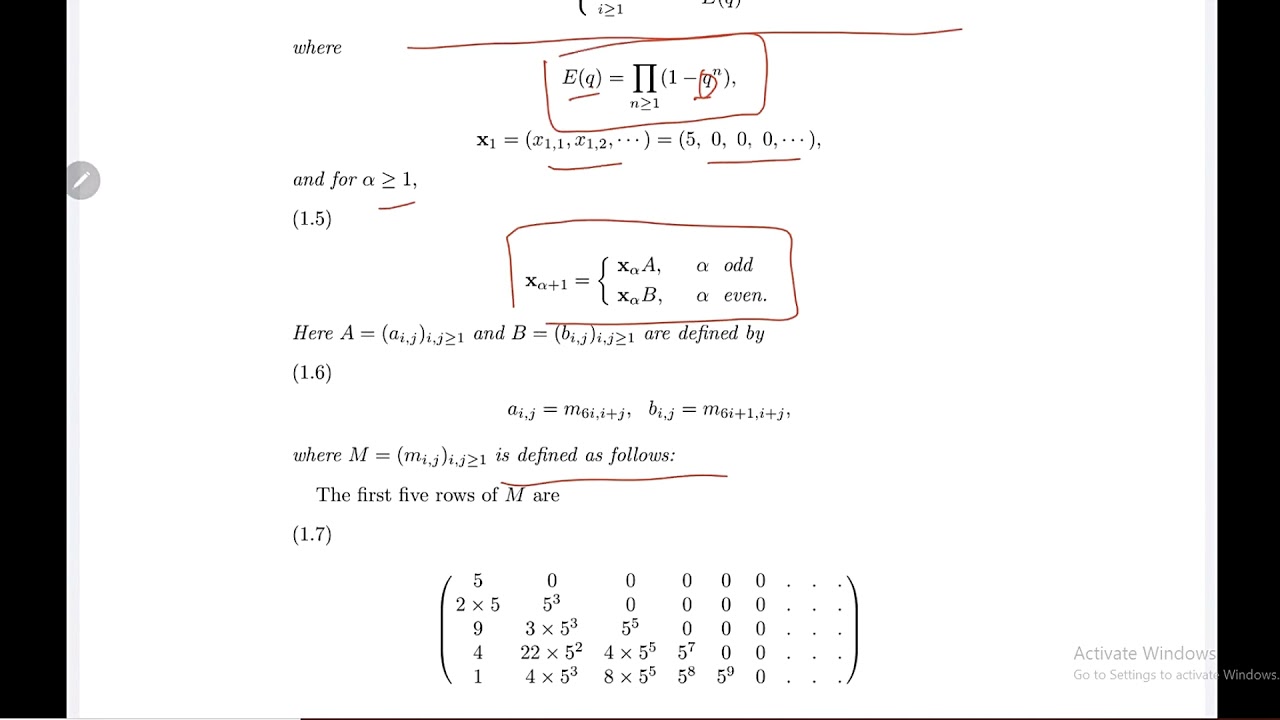 i≥1 E(q)
where
E(q) = ∏ (1 − qⁿ),
n≥1
x₁ = (x₁,₁, x₁,₂, ⋯) = (5, 0, 0, 0, ⋯),
and for α ≥ 1,
(1.5)
x_{α+1} = { x_α A, α odd
x_α B, α even.
Here A = (a_{i,j})_{i,j≥1} and B = (b_{i,j})_{i,j≥1} are defined by
(1.6)
a_{i,j} = m_{6i,i+j}, b_{i,j} = m_{6i+1,i+j},
where M = (m_{i,j})_{i,j≥1} is defined as follows:
The first five rows of M are
(1.7)
5 0 0 0 0 0 . . .
2 × 5 5³ 0 0 0 0 . . .
9 3 × 5³ 5⁵ 0 0 0 . . .
4 22 × 5² 4 × 5⁵ 5⁷ 0 0 . . .
1 4 × 5³ 8 × 5⁵ 5⁸ 5⁹ 0 . . .
Activate Windows
Go to Settings to activate Windows.